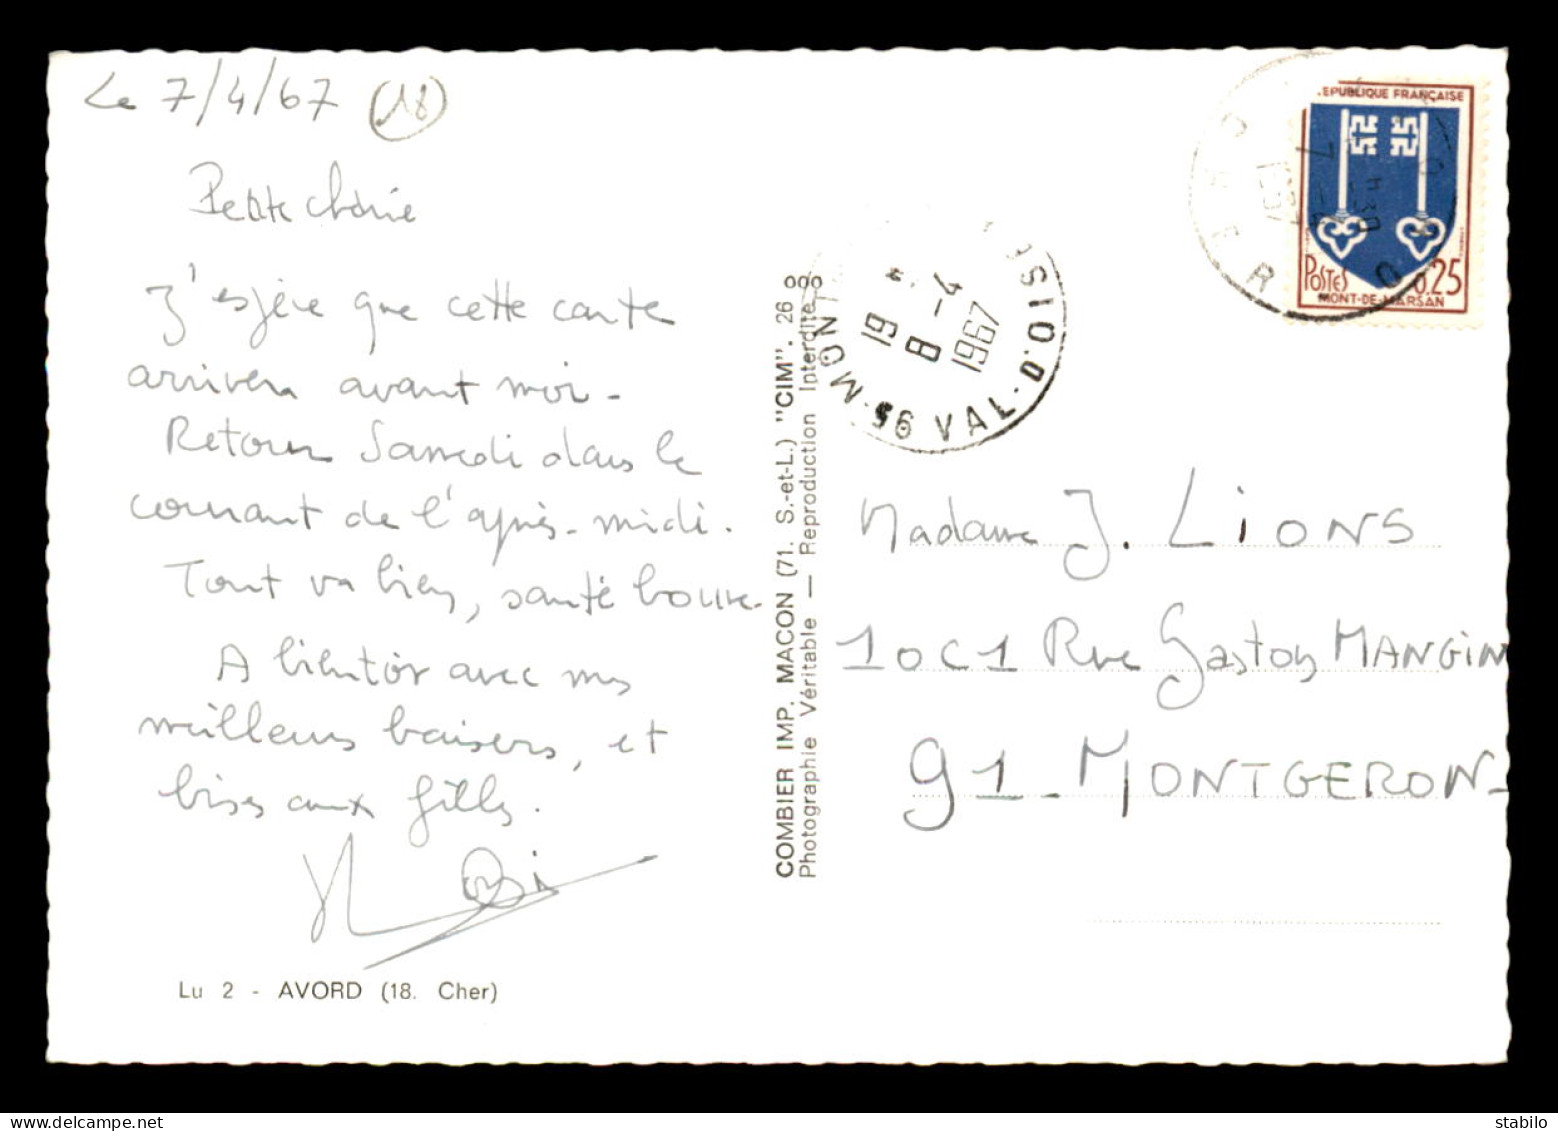 Le 7/4/67 (18)
Petite chérie
J'espère que cette carte
arrivera avant moi.
Retour Samedi dans le
courant de l'après-midi.
Tout va bien, santé bonne.
A bientôt avec mes
meilleurs baisers, et
bises aux filles.
Lu 2 - AVORD (18. Cher)
COMBIER IMP. MACON (71. S.-et-L.) "CIM". 26
Photographie Véritable — Reproduction Interdite
19 H
8 -4
1967
VAL-D'OISE
RÉPUBLIQUE FRANÇAISE
POSTES
0,25
MONT-DE-MARSAN
AVORD
CHER
7 -4
1967
Madame J. LIONS
10C1 Rue Gaston MANGIN
91_MONTGERON_